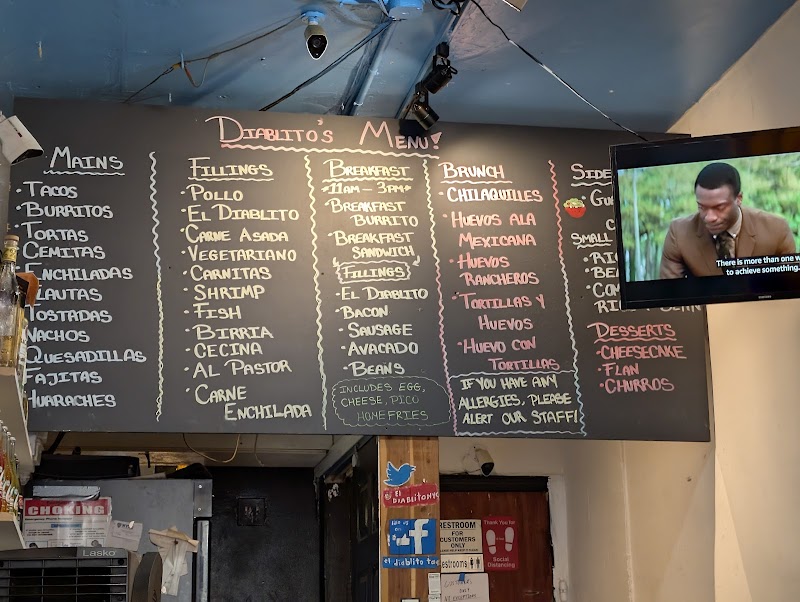 Diablito's Menu!
Mains
• Tacos
• Burritos
• Tortas
• Cemitas
• Enchiladas
Flautas
Tostadas
Nachos
Quesadillas
Fajitas
Huaraches
Fillings
• Pollo
• El Diablito
• Carne Asada
• Vegetariano
• Carnitas
• Shrimp
• Fish
• Birria
• Cecina
• Al Pastor
• Carne
Enchilada
Breakfast
• 11am - 3pm •
• Breakfast
Burrito
• Breakfast
Sandwich
Fillings
• El Diablito
• Bacon
• Sausage
• Avacado
• Beans
Includes egg,
cheese, pico
homefries
Brunch
• Chilaquilles
• Huevos ala
Mexicana
• Huevos
Rancheros
• Tortillas y
Huevos
• Huevo con
Tortillas
If you have any
allergies, please
alert our staff!
Side
Small
Desserts
• Cheesecake
• Flan
• Churros
There is more than one w
to achieve something.
CHOKING
Lasko
el diablitonyc
el diablito tac
RESTROOM
FOR
CUSTOMERS
ONLY
restrooms
Thank You for
Social
Distancing